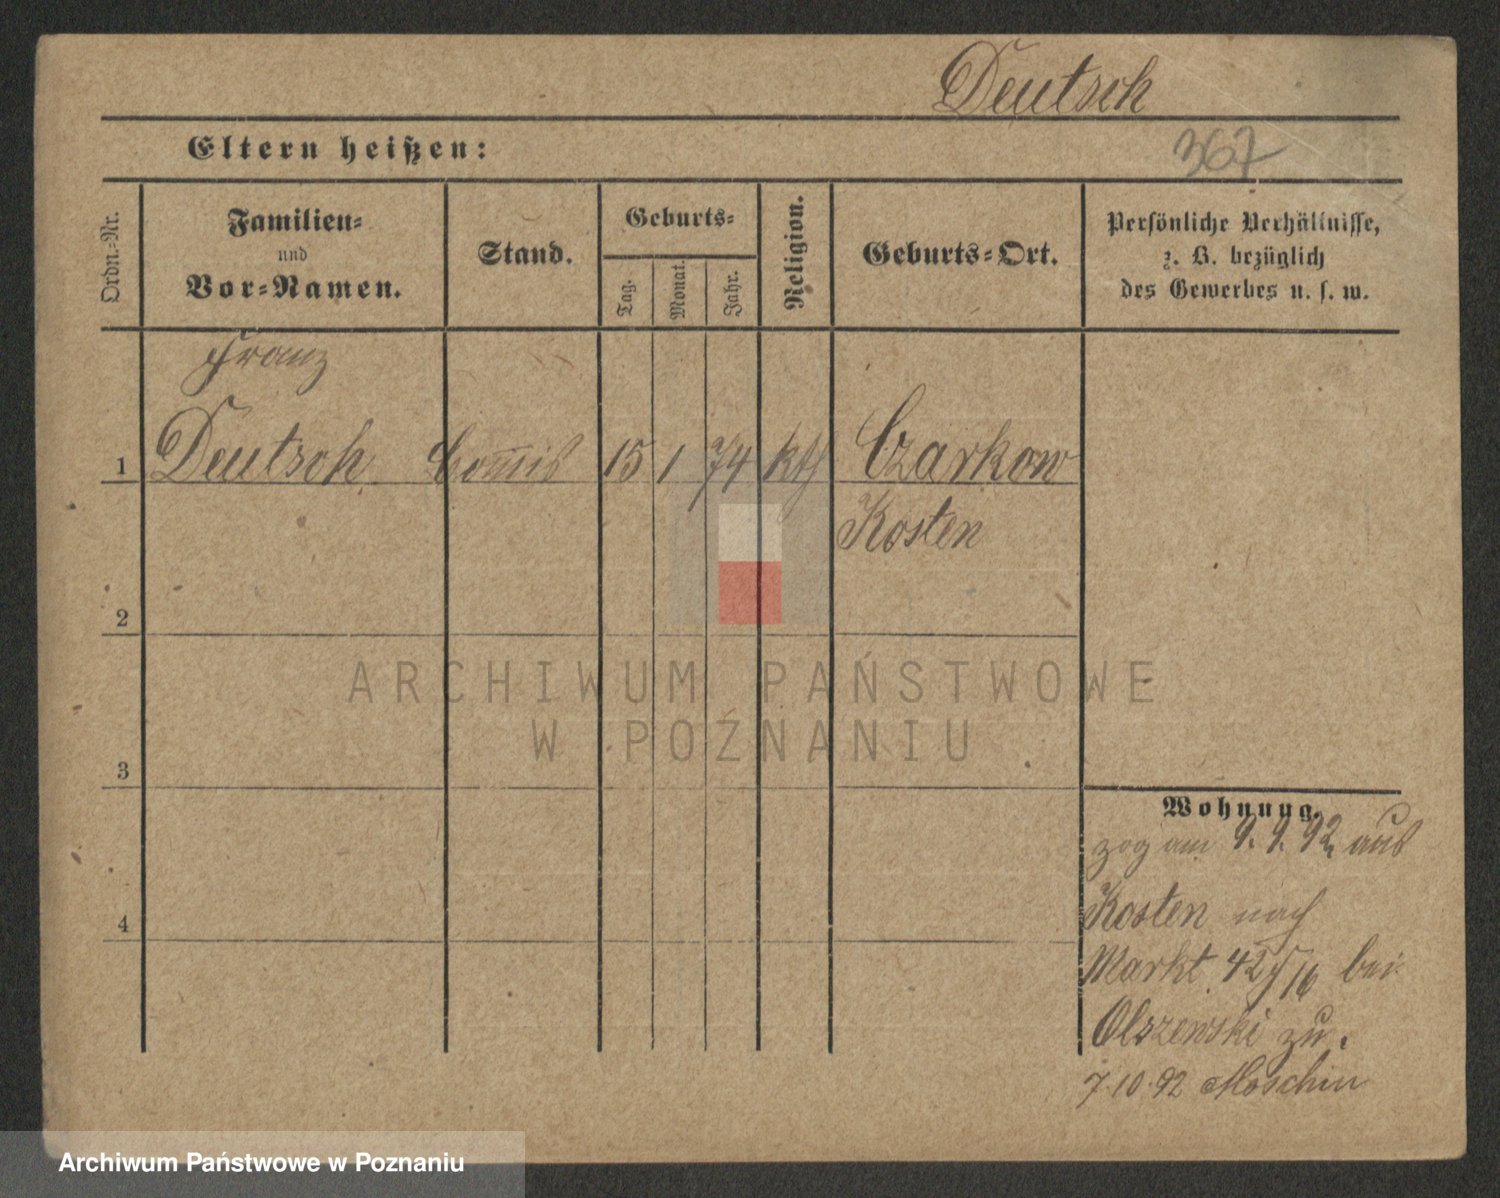 Deutsch
367
Eltern heißen:
Ordn.-Nr.
Familien-
und
Vor-Namen.
Stand.
Geburts-
Tag.
Monat.
Jahr.
Religion.
Geburts-Ort.
Persönliche Verhältnisse,
z. B. bezüglich
des Gewerbes u. s. w.
Franz
1 Deutsch Com̅is 15 1 74 kth Czarkow
Kosten
2
3
4
Wohnung.
zog am 9. 9. 92 aus
Kosten nach
Markt 42/ bei
Olszewski zu.
7.10.92 Moschin
ARCHIWUM PAŃSTWOWE
W POZNANIU
Archiwum Państwowe w Poznaniu